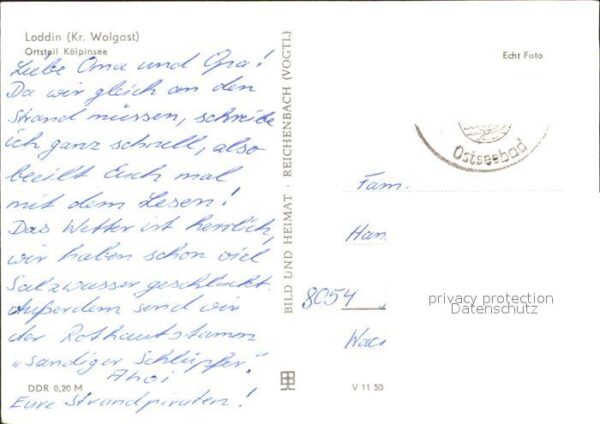 Loddin (Kr. Wolgast)
Ortsteil Kölpinsee
Liebe Oma und Opa!
Da wir gleich an den
Strand müssen, schreibe
ich ganz schnell, also
beeilt Euch mal
mit dem Lesen!
Das Wetter ist herrlich,
wir haben schon viel
Salzwasser geschluckt.
Außerdem sind wir
der Rothautstamm
„Sandiger Schlüpfer".
Ahoi
Eure Strandpiraten!
DDR 0,20 M
BILD UND HEIMAT · REICHENBACH (VOGTL)
V 11 50
Echt Foto
Ostseebad
Fam.
Han
8054
Wac
privacy protection
Datenschutz